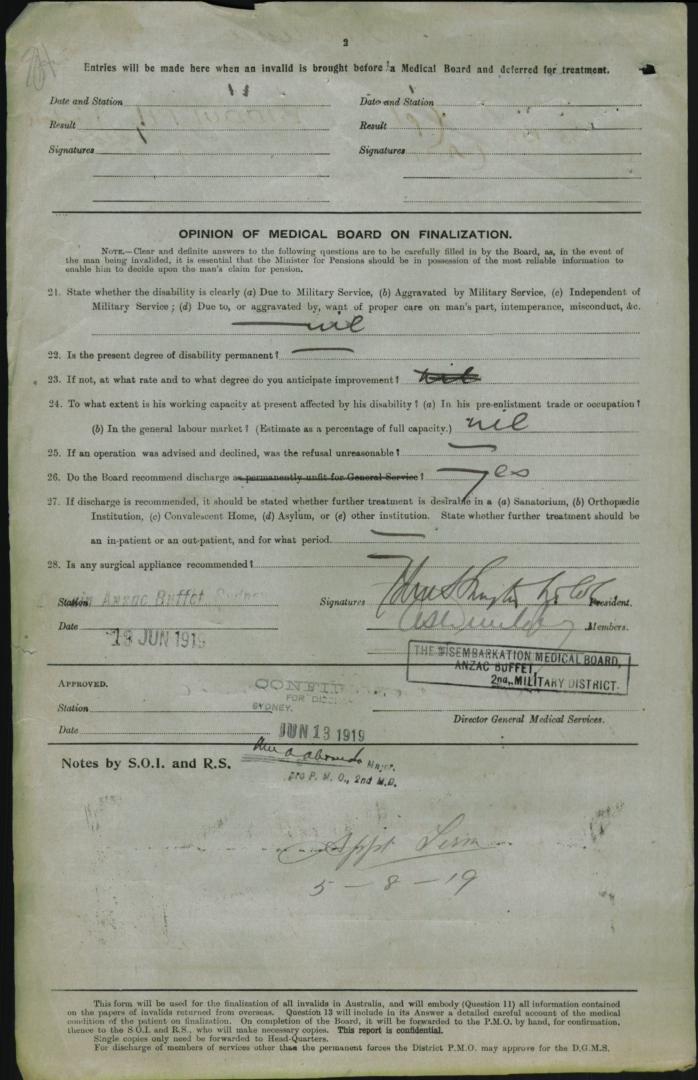 2
Entries will be made here when an invalid is brought before a Medical Board and deferred for treatment.
Date and Station
Date and Station
Result
Result
Signatures
Signatures
OPINION OF MEDICAL BOARD ON FINALIZATION.
NOTE.—Clear and definite answers to the following questions are to be carefully filled in by the Board, as, in the event of
the man being invalided, it is essential that the Minister for Pensions should be in possession of the most reliable information to
enable him to decide upon the man's claim for pension.
21. State whether the disability is clearly (a) Due to Military Service, (b) Aggravated by Military Service, (c) Independent of
Military Service; (d) Due to, or aggravated by, want of proper care on man's part, intemperance, misconduct, &c.
nil
22. Is the present degree of disability permanent? —
23. If not, at what rate and to what degree do you anticipate improvement? nil
24. To what extent is his working capacity at present affected by his disability? (a) In his pre-enlistment trade or occupation?
(b) In the general labour market? (Estimate as a percentage of full capacity.) nil
25. If an operation was advised and declined, was the refusal unreasonable? —
26. Do the Board recommend discharge as permanently unfit for General Service? Yes
27. If discharge is recommended, it should be stated whether further treatment is desirable in a (a) Sanatorium, (b) Orthopædic
Institution, (c) Convalescent Home, (d) Asylum, or (e) other institution. State whether further treatment should be
an in-patient or an out-patient, and for what period. —
28. Is any surgical appliance recommended? —
Station Anzac Buffet Sydney
Signatures
President.
Date 13 JUN 1919
Members.
THE DISEMBARKATION MEDICAL BOARD,
ANZAC BUFFET,
2nd, MILITARY DISTRICT.
APPROVED.
Station SYDNEY.
Director General Medical Services.
Date JUN 13 1919
Major.
P. M. O., 2nd M.D.
Notes by S.O.I. and R.S.
Appt Term
5-8-19
This form will be used for the finalization of all invalids in Australia, and will embody (Question 11) all information contained
on the papers of invalids returned from overseas. Question 13 will include in its Answer a detailed careful account of the medical
condition of the patient on finalization. On completion of the Board, it will be forwarded to the P.M.O. by hand, for confirmation,
thence to the S.O.I. and R.S., who will make necessary copies. This report is confidential.
Single copies only need be forwarded to Head-Quarters.
For discharge of members of services other than the permanent forces the District P.M.O. may approve for the D.G.M.S.